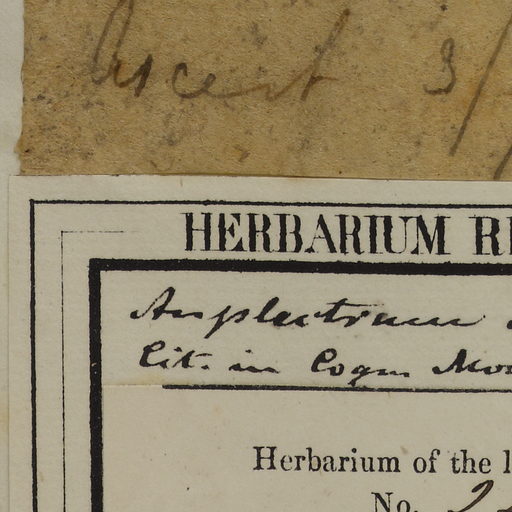 Ascent 3/
HERBARIUM R
Anplectrum
Cit. in Cogn Mon
Herbarium of the l
No. 2